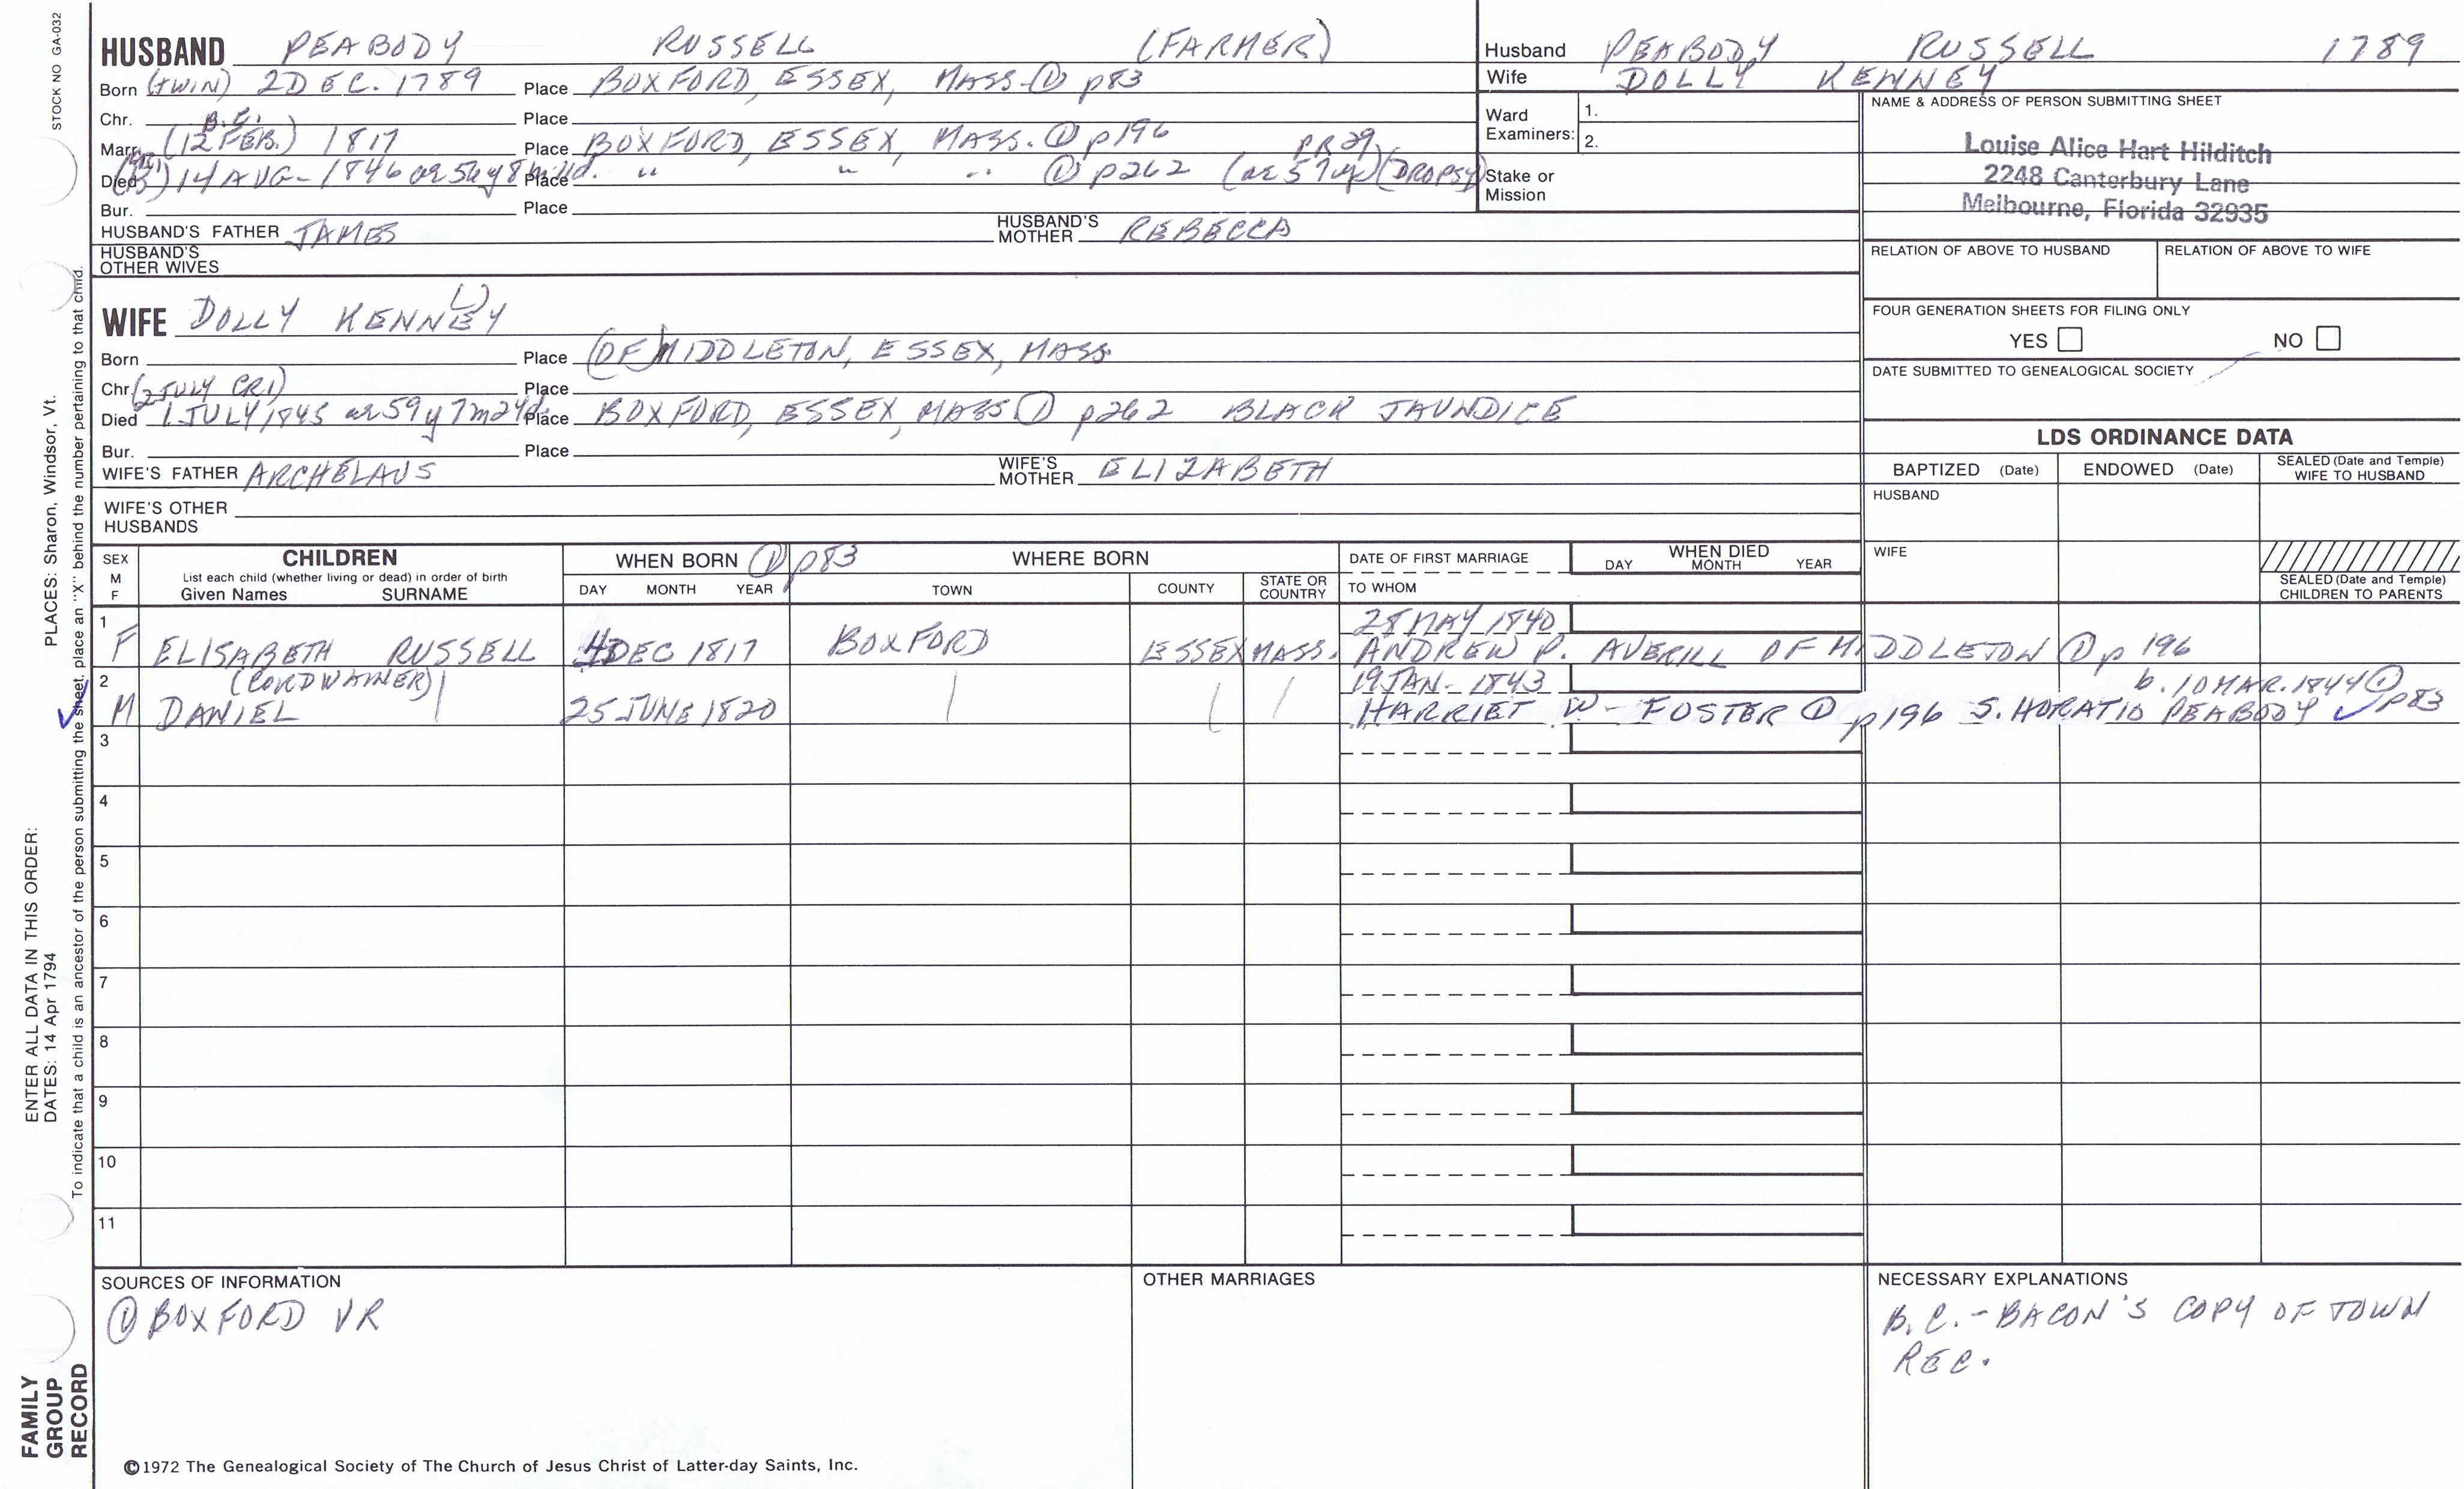 STOCK NO GA-032
HUSBAND PEABODY RUSSELL (FARMER)
Born (TWIN) 2 DEC. 1789 Place BOXFORD, ESSEX, MASS. ① p83
Chr. Place
B.C.
Marr. (12 FEB.) 1817 Place BOXFORD, ESSEX, MASS. ① p196
PR29
Died 14 AUG - 1846 ae 56y 8m 11d. Place " " " ① p262 (ae 57y) (DROPSY)
Bur. Place
HUSBAND'S FATHER JAMES HUSBAND'S MOTHER REBECCA
HUSBAND'S OTHER WIVES
WIFE DOLLY KENNEY
Born Place (OF) MIDDLETON, ESSEX, MASS.
Chr. Place
(2 JULY CR1)
Died 1 JULY 1845 ae 59y 7m 24d Place BOXFORD, ESSEX, MASS ① p262 BLACK JAUNDICE
Bur. Place
WIFE'S FATHER ARCHELAUS WIFE'S MOTHER ELIZABETH
WIFE'S OTHER HUSBANDS
Husband PEABODY RUSSELL 1789
Wife DOLLY KENNEY
Ward Examiners: 1.
2.
Stake or Mission
NAME & ADDRESS OF PERSON SUBMITTING SHEET
Louise Alice Hart Hilditch
2248 Canterbury Lane
Melbourne, Florida 32935
RELATION OF ABOVE TO HUSBAND RELATION OF ABOVE TO WIFE
FOUR GENERATION SHEETS FOR FILING ONLY
YES NO
DATE SUBMITTED TO GENEALOGICAL SOCIETY
LDS ORDINANCE DATA
BAPTIZED (Date) ENDOWED (Date) SEALED (Date and Temple) WIFE TO HUSBAND
HUSBAND
WIFE
SEALED (Date and Temple) CHILDREN TO PARENTS
SEX M F
CHILDREN
List each child (whether living or dead) in order of birth
Given Names SURNAME
WHEN BORN ① p83
DAY MONTH YEAR
WHERE BORN
TOWN COUNTY STATE OR COUNTRY
DATE OF FIRST MARRIAGE
TO WHOM
WHEN DIED
DAY MONTH YEAR
28 MAY 1840
1 F ELISABETH RUSSELL 4 DEC 1817 BOXFORD ESSEX MASS. ANDREW P. AVERILL OF MIDDLETON ① p 196
(CORDWAINER) 19 JAN - 1843 b. 10 MAR. 1844 ①
2 M DANIEL 25 JUNE 1820 HARRIET W - FOSTER ① p196 S. HORATIO PEABODY ✓ p83
3
4
5
6
7
8
9
10
11
SOURCES OF INFORMATION
① BOXFORD VR
OTHER MARRIAGES
NECESSARY EXPLANATIONS
B.C. - BACON'S COPY OF TOWN
REC.
©1972 The Genealogical Society of The Church of Jesus Christ of Latter-day Saints, Inc.
ENTER ALL DATA IN THIS ORDER:
DATES: 14 Apr 1794 PLACES: Sharon, Windsor, Vt.
To indicate that a child is an ancestor of the person submitting the sheet, place an "X" behind the number pertaining to that child.
FAMILY
GROUP
RECORD